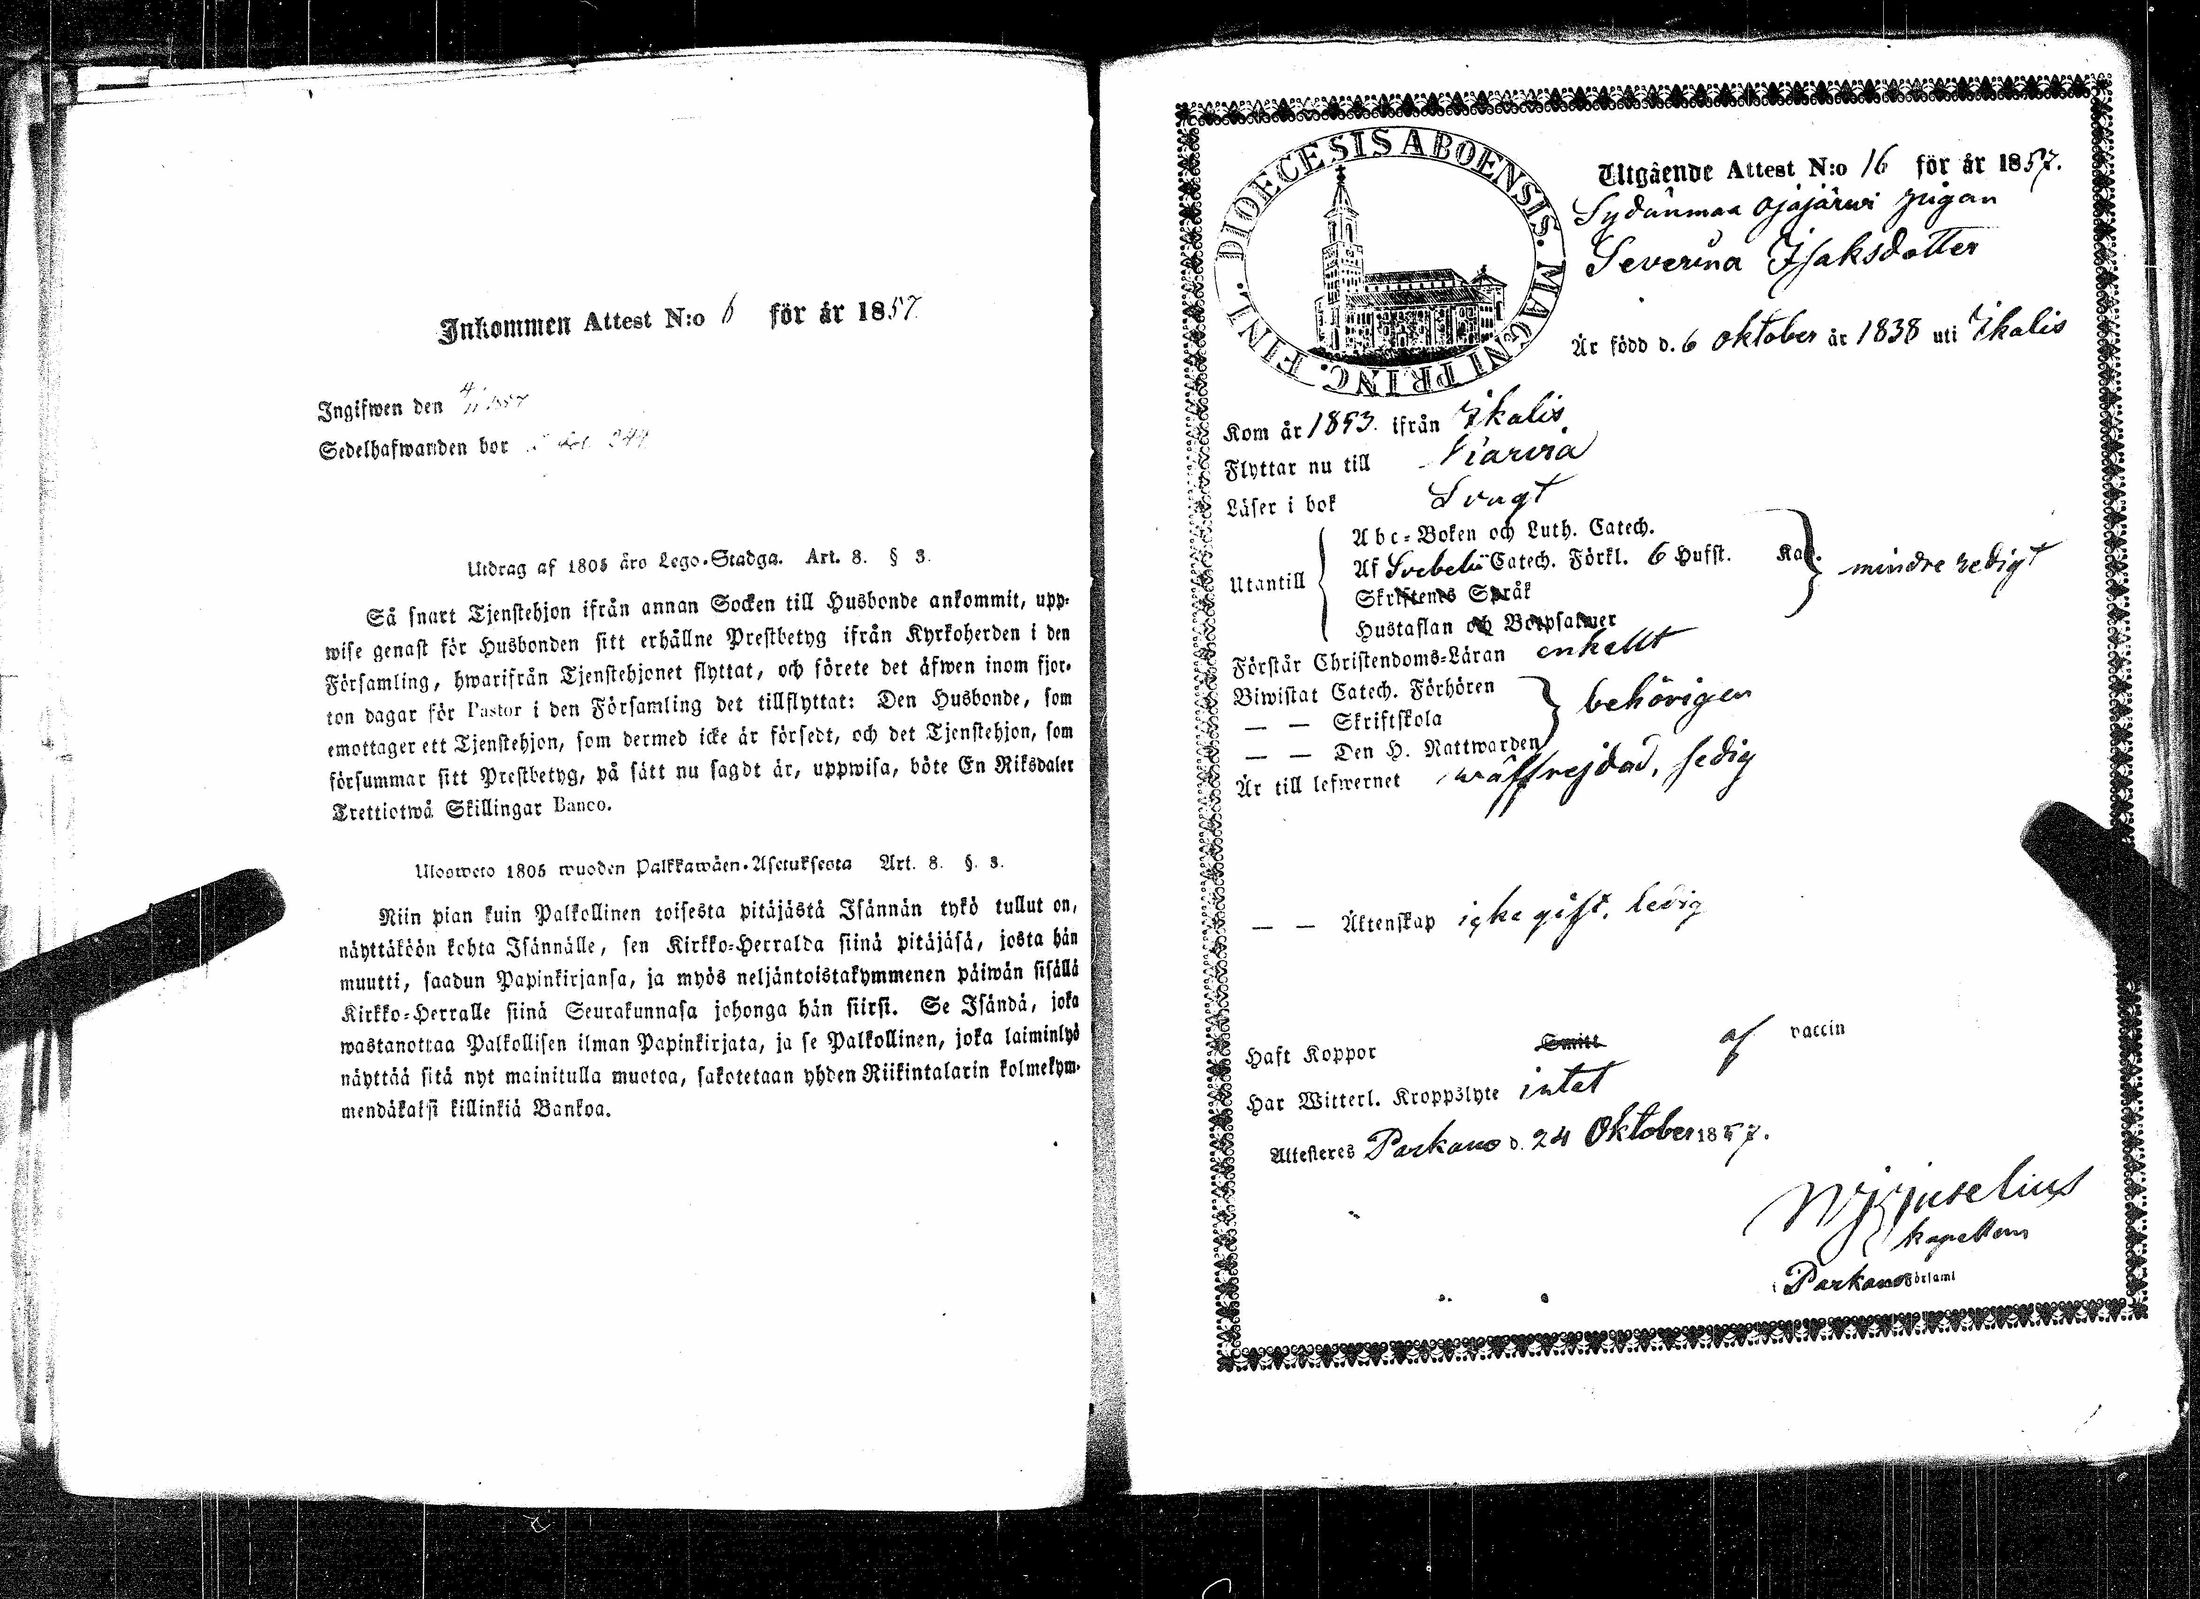 Inkommen Attest N:o 6 för år 1857.
Ingifwen den 4/11 1857
Sedelhafwanden bor
Utdrag af 1805 åro Lego-Stadga. Art. 8. § 3.
Så snart Tjenstehjon ifrån annan Socken till Husbonde ankommit, upp-
wise genast för Husbonden sitt erhållne Prestbetyg ifrån Kyrkoherden i den
Församling, hwarifrån Tjenstehjonet flyttat, och förete det äfwen inom fjor-
ton dagar för Pastor i den Församling det tillflyttat: Den Husbonde, som
emottager ett Tjenstehjon, som dermed icke är försedt, och det Tjenstehjon, som
försummar sitt Prestbetyg, på sätt nu sagdt är, uppwisa, böte En Riksdaler
Trettiotwå Skillingar Banco.
Ulosweto 1805 wuoden Palkkawäen-Asetuksesta Art. 8. §. 3.
Niin pian kuin Palkollinen toisesta pitäjästä Isännän tykö tullut on,
näyttäköön kohta Isännälle, sen Kirkko-Herralda siinä pitäjäsä, josta hän
muutti, saadun Papinkirjansa, ja myös neljäntoistakymmenen päiwän sisällä
Kirkko-Herralle siinä Seurakunnasa johonga hän siirsi. Se Isändä, joka
wastanottaa Palkollisen ilman Papinkirjata, ja se Palkollinen, joka laiminlyö
näyttää sitä nyt mainitulla muotoa, sakotetaan yhden Riikintalarin kolmekym-
mendäkaksi killinkiä Bankoa.
DIOECESIS ABOENSIS. MAGNI PRINC. FINL.
Utgående Attest N:o 16 för år 1857.
Sydänmaa Ojajärwi pigan
Severina Isaksdotter
Är född d. 6 Oktober år 1838 uti Ikalis
Kom år 1853. ifrån Ikalis
Flyttar nu till Karvia
Läser i bok Svagt
Utantill
Abc-Boken och Luth. Catech.
Af Svebelii Catech. Förkl. 6 Hufst. Kap. mindre redigt
Skriftenes Språk
Hustaflan och Botpsalmer
Förstår Christendoms-Läran enkelt
Biwistat Catech. Förhören
— — Skriftskola behörigen
— — Den H. Nattwarden
Är till lefwernet wälfrejdad, sedig
— — Äktenskap icke gift, ledig
Haft Koppor Smitt af vaccin
Har Witterl. Kroppslyte intet
Attesteres Parkano d. 24 Oktober 1857.
kapellan
i Parkano Församl